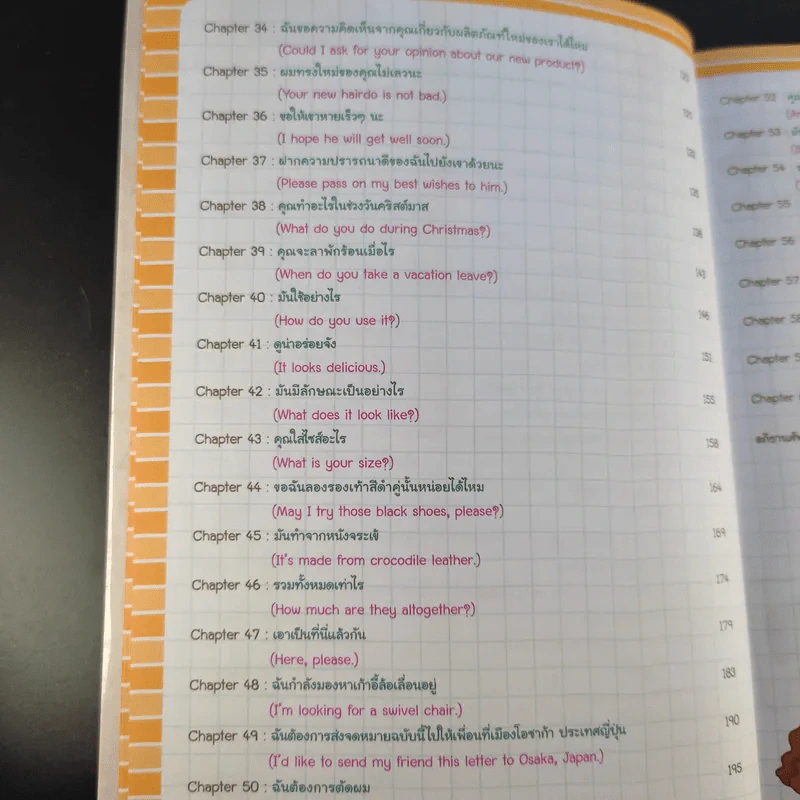 Chapter 34 : ฉันขอความคิดเห็นจากคุณเกี่ยวกับผลิตภัณฑ์ใหม่ของเราได้ไหม
(Could I ask for your opinion about our new product?)
Chapter 35 : ผมทรงใหม่ของคุณไม่เลวนะ
(Your new hairdo is not bad.) 121
Chapter 36 : ขอให้เขาหายเร็วๆ นะ
(I hope he will get well soon.)
Chapter 37 : ฝากความปรารถนาดีของฉันไปยังเขาด้วยนะ
(Please pass on my best wishes to him.)
Chapter 38 : คุณทำอะไรในช่วงวันคริสต์มาส
(What do you do during Christmas?)
Chapter 39 : คุณจะลาพักร้อนเมื่อไร
(When do you take a vacation leave?) 143
Chapter 40 : มันใช้อย่างไร
(How do you use it?) 146
Chapter 41 : ดูน่าอร่อยจัง
(It looks delicious.) 151
Chapter 42 : มันมีลักษณะเป็นอย่างไร
(What does it look like?) 155
Chapter 43 : คุณใส่ไซส์อะไร
(What is your size?) 158
Chapter 44 : ขอฉันลองรองเท้าสีดำคู่นั้นหน่อยได้ไหม
(May I try those black shoes, please?) 164
Chapter 45 : มันทำจากหนังจระเข้
(It's made from crocodile leather.) 169
Chapter 46 : รวมทั้งหมดเท่าไร
(How much are they altogether?) 174
Chapter 47 : เอาเป็นที่นี่แล้วกัน
(Here, please.) 179
Chapter 48 : ฉันกำลังมองหาเก้าอี้ล้อเลื่อนอยู่
(I'm looking for a swivel chair.) 183
Chapter 49 : ฉันต้องการส่งจดหมายฉบับนี้ไปให้เพื่อนที่เมืองโอซาก้า ประเทศญี่ปุ่น
(I'd like to send my friend this letter to Osaka, Japan.) 190
Chapter 50 : ฉันต้องการตัดผม 195
Chapter 52
Chapter 53
Chapter 54
Chapter 55
Chapter 56
Chapter 57
Chapter 58
Chapter
Chapter